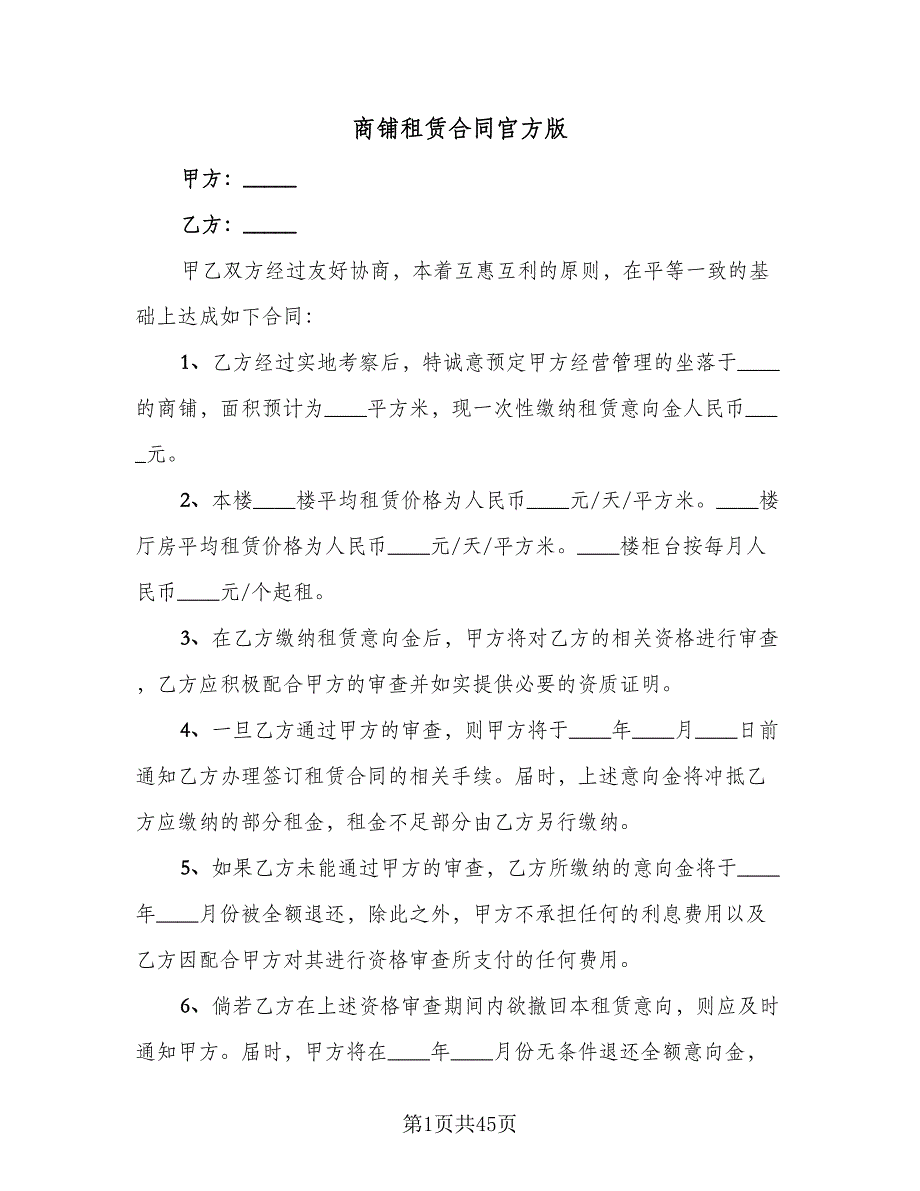 商铺租赁合同官方版
甲方：_____
乙方：_____
甲乙双方经过友好协商，本着互惠互利的原则，在平等一致的基
础上达成如下合同：
1、乙方经过实地考察后，特诚意预定甲方经营管理的坐落于____
的商铺，面积预计为____平方米，现一次性缴纳租赁意向金人民币___
_元。
2、本楼____楼平均租赁价格为人民币____元/天/平方米。____楼
厅房平均租赁价格为人民币____元/天/平方米。____楼柜台按每月人
民币____元/个起租。
3、在乙方缴纳租赁意向金后，甲方将对乙方的相关资格进行审查
，乙方应积极配合甲方的审查并如实提供必要的资质证明。
4、一旦乙方通过甲方的审查，则甲方将于____年____月____日前
通知乙方办理签订租赁合同的相关手续。届时，上述意向金将冲抵乙
方应缴纳的部分租金，租金不足部分由乙方另行缴纳。
5、如果乙方未能通过甲方的审查，乙方所缴纳的意向金将于____
年____月份被全额退还，除此之外，甲方不承担任何的利息费用以及
乙方因配合甲方对其进行资格审查所支付的任何费用。
6、倘若乙方在上述资格审查期间内欲撤回本租赁意向，则应及时
通知甲方。届时，甲方将在____年____月份无条件退还全额意向金，
第1页共45页